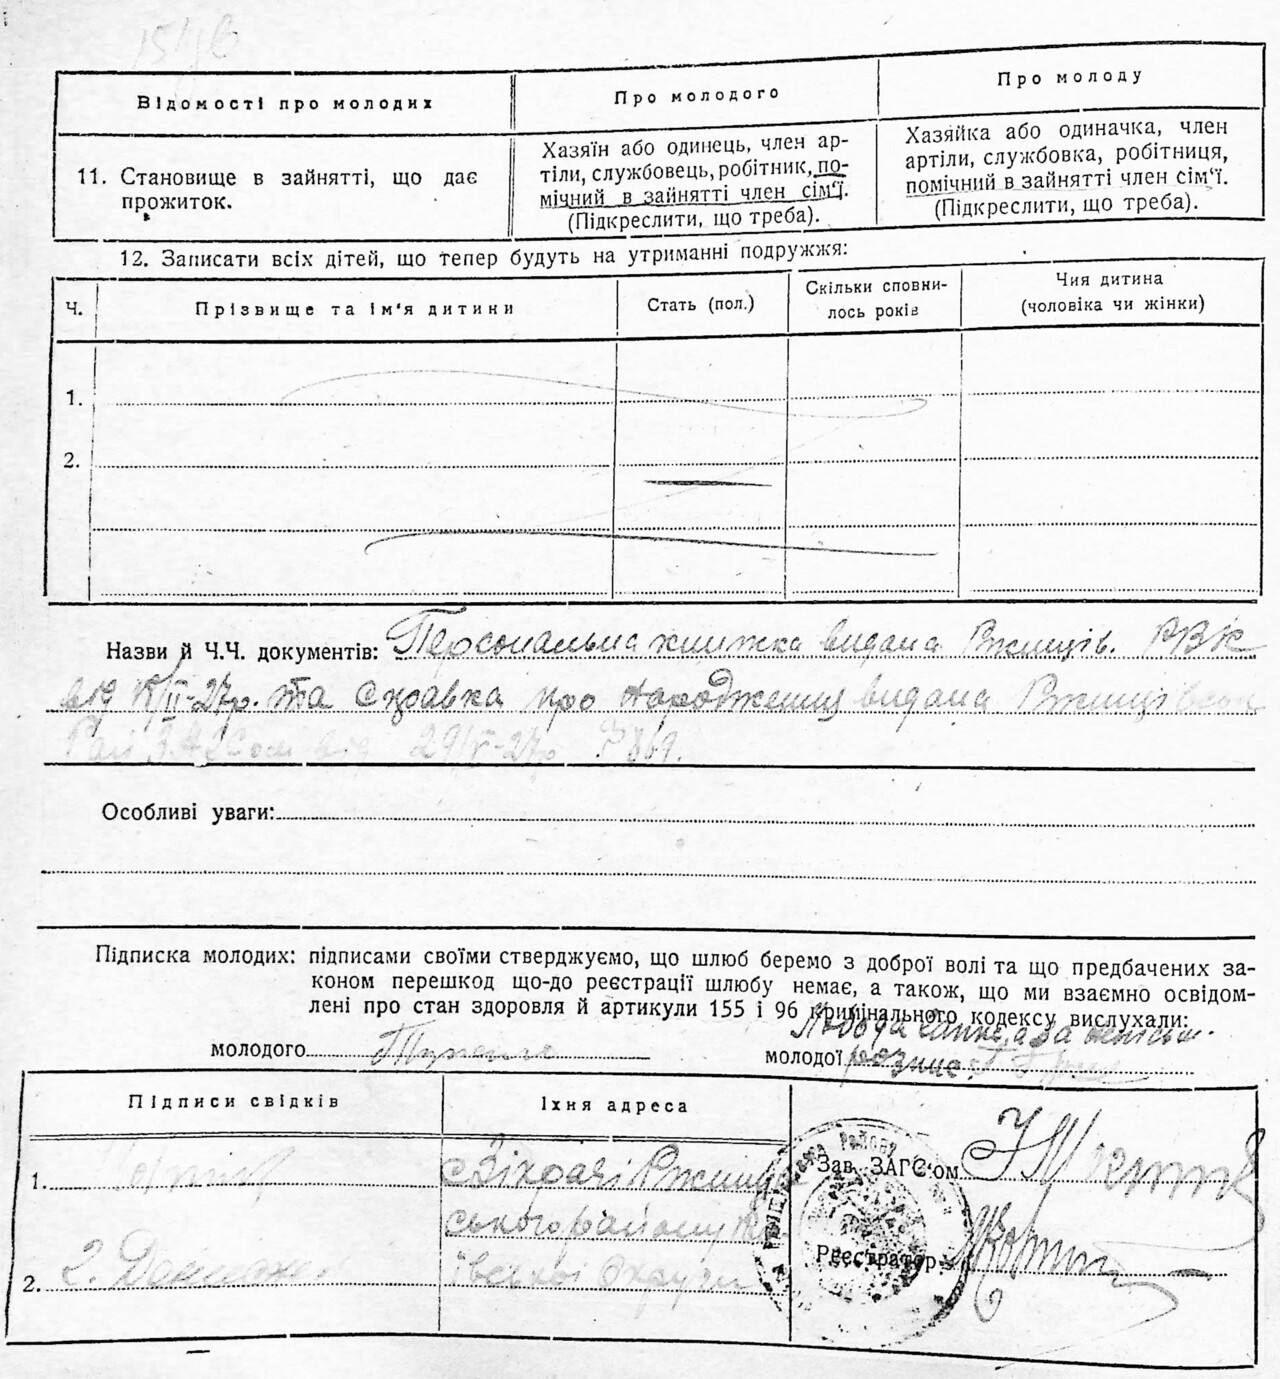 Відомості про молодих
Про молодого
Про молоду
11. Становище в зайнятті, що дає
прожиток.
Хазяїн або одинець, член ар-
тілі, службовець, робітник, по-
мічний в зайнятті член сім'ї.
(Підкреслити, що треба).
Хазяйка або одиначка, член
артілі, службовка, робітниця,
помічний в зайнятті член сім'ї.
(Підкреслити, що треба).
12. Записати всіх дітей, що тепер будуть на утриманні подружжя:
Ч.
Прізвище та ім'я дитини
Стать (пол.)
Скільки сповни-
лось років
Чия дитина
(чоловіка чи жінки)
1.
2.
Назви й Ч.Ч. документів: Персональна книжка видана Ржищів. РВК
від II-27р. та справка про народження видана Ржищівськ
від 29/V-27р № 869.
Особливі уваги:
Підписка молодих: підписами своїми стверджуємо, що шлюб беремо з доброї волі та що предбачених за-
коном перешкод що-до реєстрації шлюбу немає, а також, що ми взаємно освідом-
лені про стан здоровля й артикули 155 і 96 кримінального кодексу вислухали:
молодого
молодої
Підписи свідків
Їхня адреса
1.
Ржищів
ського району
2.
округи
Зав. ЗАГС'ом
Реєстратор